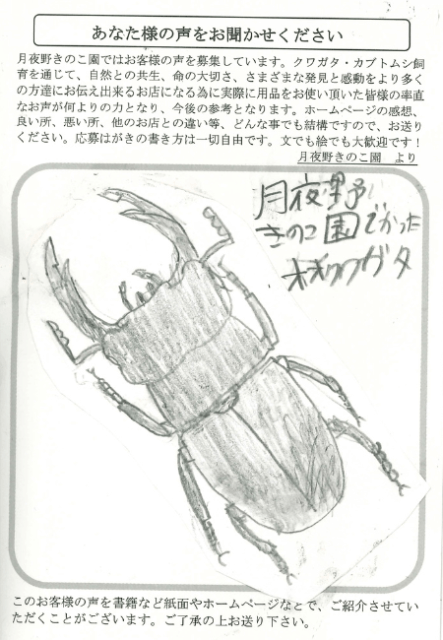 あなた様の声をお聞かせください
月夜野きのこ園ではお客様の声を募集しています。クワガタ・カブトムシ飼
育を通じて、自然との共生、命の大切さ、さまざまな発見と感動をより多く
の方達にお伝え出来るお店になる為に実際に用品をお使い頂いた皆様の率直
なお声が何よりの力となり、今後の参考となります。ホームページの感想、
良い所、悪い所、他のお店との違い等、どんな事でも結構ですので、お送り
ください。応募はがきの書き方は一切自由です。文でも絵でも大歓迎です！
月夜野きのこ園　より
月夜野
きのこ園でかった
オオクワガタ
このお客様の声を書籍など紙面やホームページなどで、ご紹介させてい
ただくことがございます。ご了承の上お送り下さい。